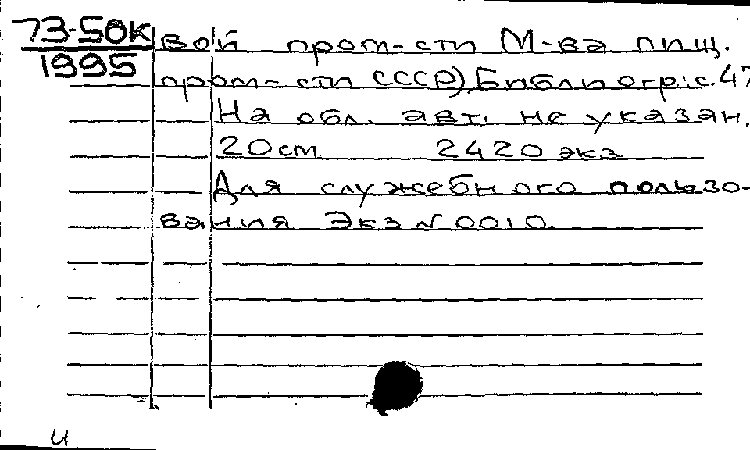 73-50К
1995
вой пром-сти М-ва пищ.
пром-сти СССР). Библиогр.: с. 47
На обл. авт. не указан.
20 см 2420 экз
Для служебного пользо-
вания Экз № 0010.
и